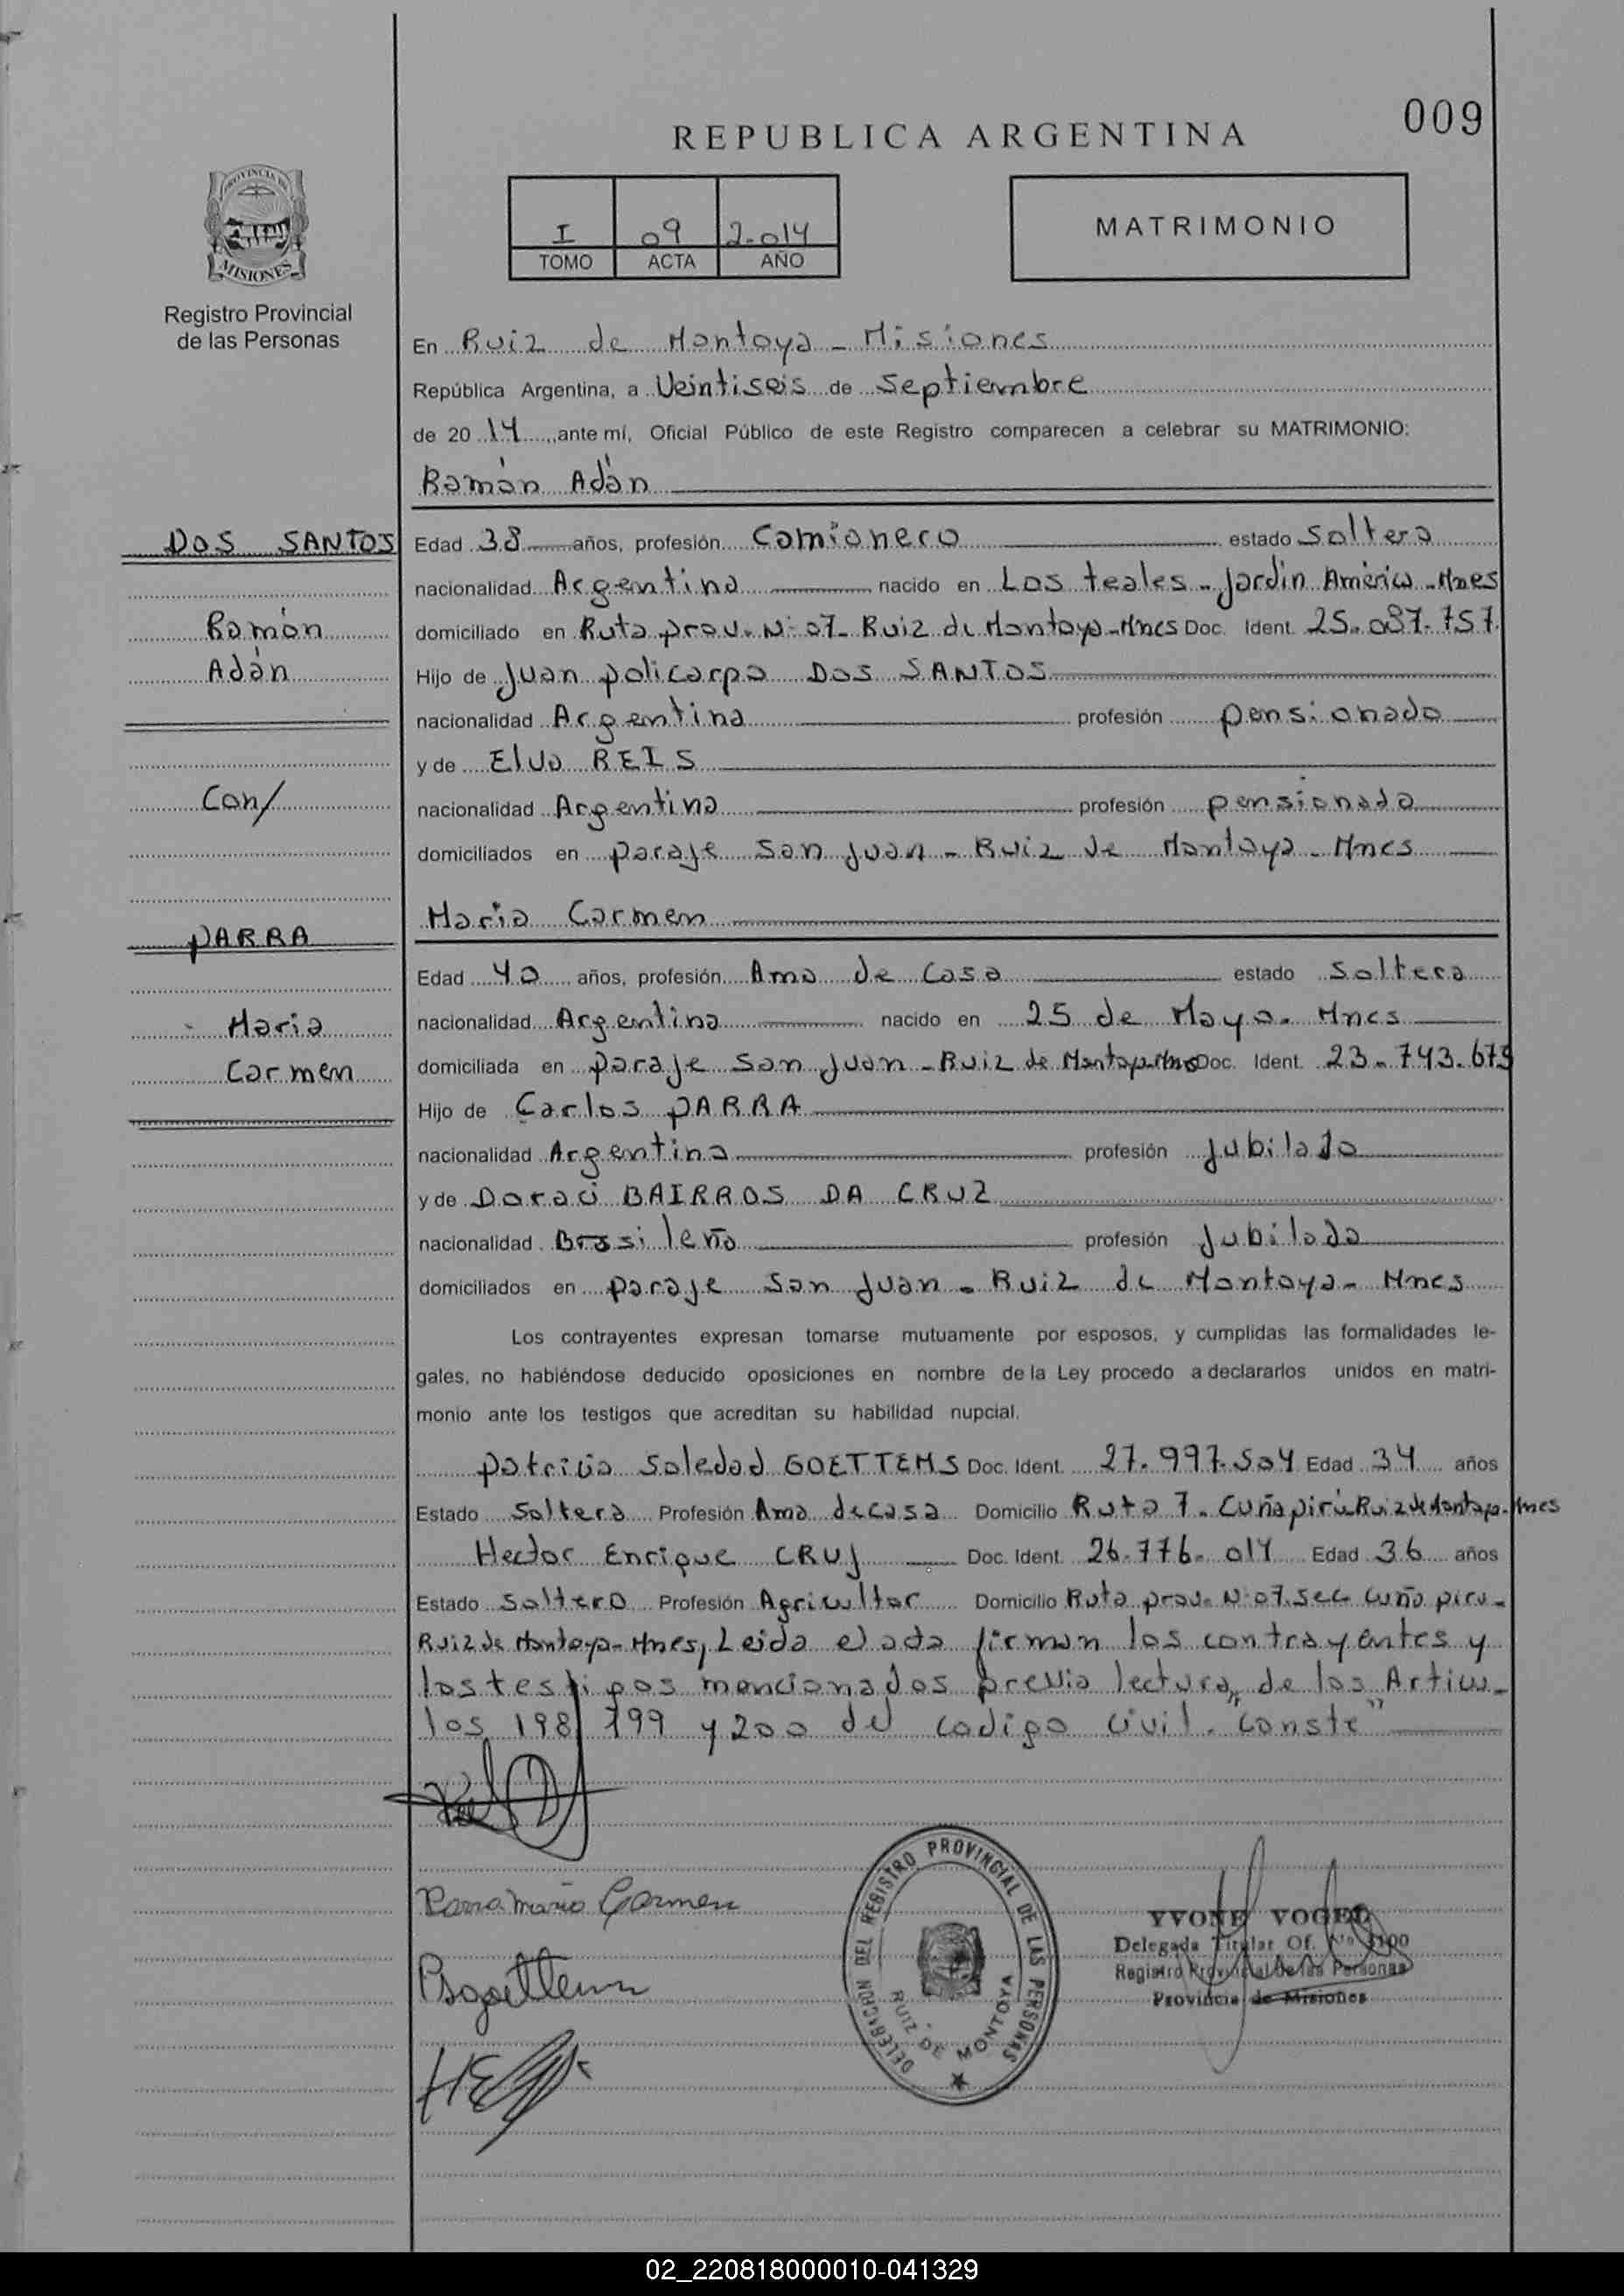 009
REPUBLICA ARGENTINA
PROVINCIA DE
MISIONES
Registro Provincial
de las Personas
I 09 2.014
TOMO ACTA AÑO
MATRIMONIO
En Ruiz de Montoya - Misiones
República Argentina, a Veintiseis de Septiembre
de 20 14 ante mí, Oficial Público de este Registro comparecen a celebrar su MATRIMONIO:
Ramón Adán
DOS SANTOS
Ramón
Adán
Con/
PARRA
Maria
Carmen
Edad 38 años, profesión Camionero estado Soltero
nacionalidad Argentina nacido en Los teales - Jardín América - Mnes
domiciliado en Ruta prov. Nº 07 - Ruiz de Montoya - Mnes Doc. Ident. 25.087.757
Hijo de Juan policarpo DOS SANTOS
nacionalidad Argentina profesión pensionado
y de Elva REIS
nacionalidad Argentina profesión pensionada
domiciliados en paraje San Juan - Ruiz de Montoya - Mnes
Maria Carmen
Edad 40 años, profesión Ama de Casa estado Soltera
nacionalidad Argentina nacido en 25 de Mayo - Mnes
domiciliada en paraje San Juan - Ruiz de Montoya-Mnes Doc. Ident. 23.743.673
Hijo de Carlos PARRA
nacionalidad Argentina profesión Jubilado
y de BAIRROS DA CRUZ
nacionalidad Brasileña profesión Jubilada
domiciliados en paraje San Juan - Ruiz de Montoya - Mnes
Los contrayentes expresan tomarse mutuamente por esposos, y cumplidas las formalidades le-
gales, no habiéndose deducido oposiciones en nombre de la Ley procedo a declararlos unidos en matri-
monio ante los testigos que acreditan su habilidad nupcial.
Patricia Soledad GOETTEMS Doc. Ident. 27.997.504 Edad 34 años
Estado Soltera Profesión Ama de casa Domicilio Ruta 7 - Cuñapirú Ruiz de Montoya - Mnes
Hector Enrique CRUJ Doc. Ident. 26.776.014 Edad 36 años
Estado Soltero Profesión Agricultor Domicilio Ruta prov. Nº 07. Sec Cuña piru -
Ruiz de Montoya - Mnes, Leida el acta firman los contrayentes y
los testigos mencionados previa lectura de los Articu-
los 198, 199 y 200 del codigo civil. "Conste"
Parra Maria Carmen
PSGoettems
DELEGACION DEL REGISTRO PROVINCIAL DE LAS PERSONAS
RUIZ DE MONTOYA
YVONE VOGEL
Delegada Titular Of. Nº 3100
Registro Provincial de las Personas
Provincia de Misiones
02_220818000010-041329